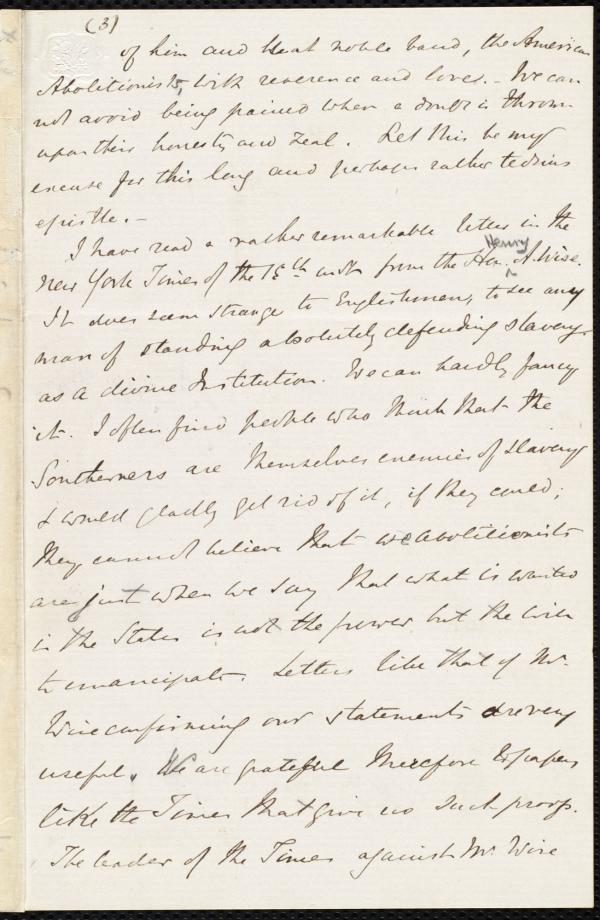 (3)
of him and that noble band, the American
Abolitionists, with reverence and love. - We can
not avoid being pained when a doubt is thrown
upon their honesty and zeal. Let this be my
excuse for this long and perhaps rather tedious
epistle. -
I have read a rather remarkable letter in the
New York Times of the 15th inst from the Hon. Henry A. Wise.
It does seem strange to Englishmen, to see any
man of standing absolutely defending slavery
as a divine Institution. We can hardly fancy
it. I often find people who think that the
Southerners are themselves enemies of slavery
& would gladly get rid of it, if they could;
they cannot believe that we abolitionists
are just when we say that what is wanted
in the States is not the power but the will
to emancipate. Letters like that of Mr.
Wise confirming our statements are very
useful. We are grateful therefore to papers
like the Times that give us such proofs.
The leader of the Times against Mr. Wise